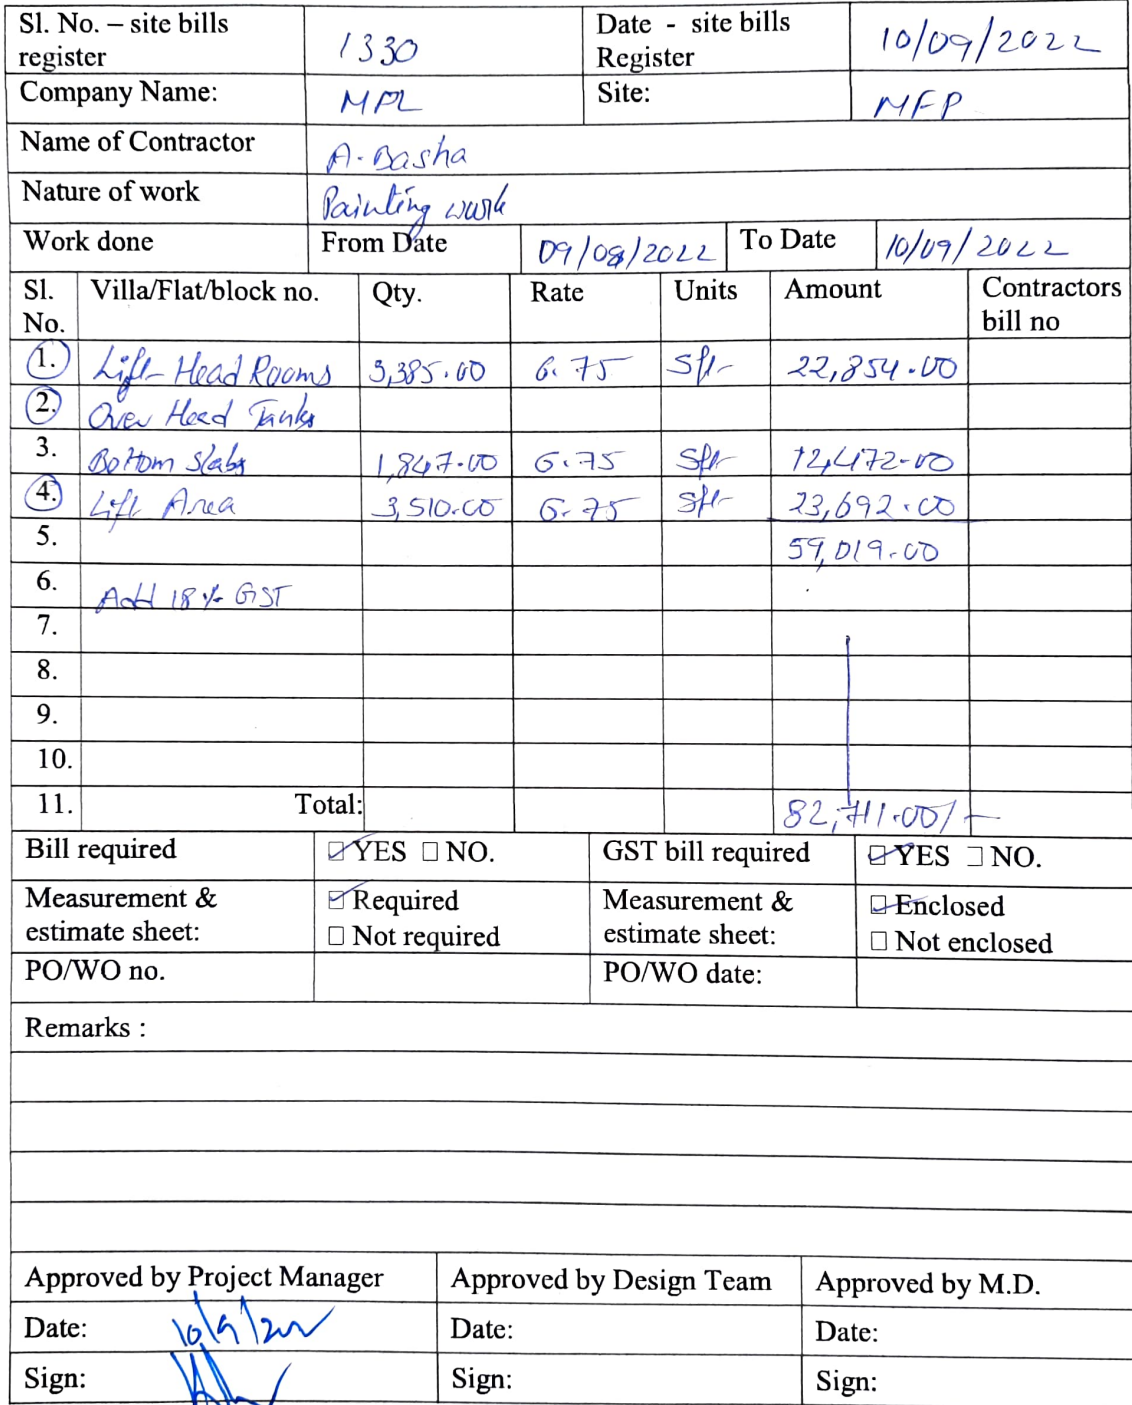 Sl. No. – site bills register 1330 Date - site bills Register 10/09/2022
Company Name: MPL Site: MFP
Name of Contractor A. Basha
Nature of work Painting work
Work done From Date 09/08/2022 To Date 10/09/2022
Sl. No. Villa/Flat/block no. Qty. Rate Units Amount Contractors bill no
1. Lift Head Rooms 3,385.00 6.75 Sft 22,854.00
2. Over Head Tanks
3. Bottom Slabs 1,847.00 6.75 Sft 12,472.00
4. Lift Area 3,510.00 6.75 Sft 23,692.00
5. 59,019.00
6. Add 18% GST
7.
8.
9.
10.
11. Total: 82,711.00/-
Bill required ☑ YES ☐ NO. GST bill required ☑ YES ☐ NO.
Measurement & estimate sheet: ☑ Required ☐ Not required Measurement & estimate sheet: ☑ Enclosed ☐ Not enclosed
PO/WO no. PO/WO date:
Remarks :
Approved by Project Manager Approved by Design Team Approved by M.D.
Date: 10/9/202 Date: Date:
Sign: Sign: Sign: